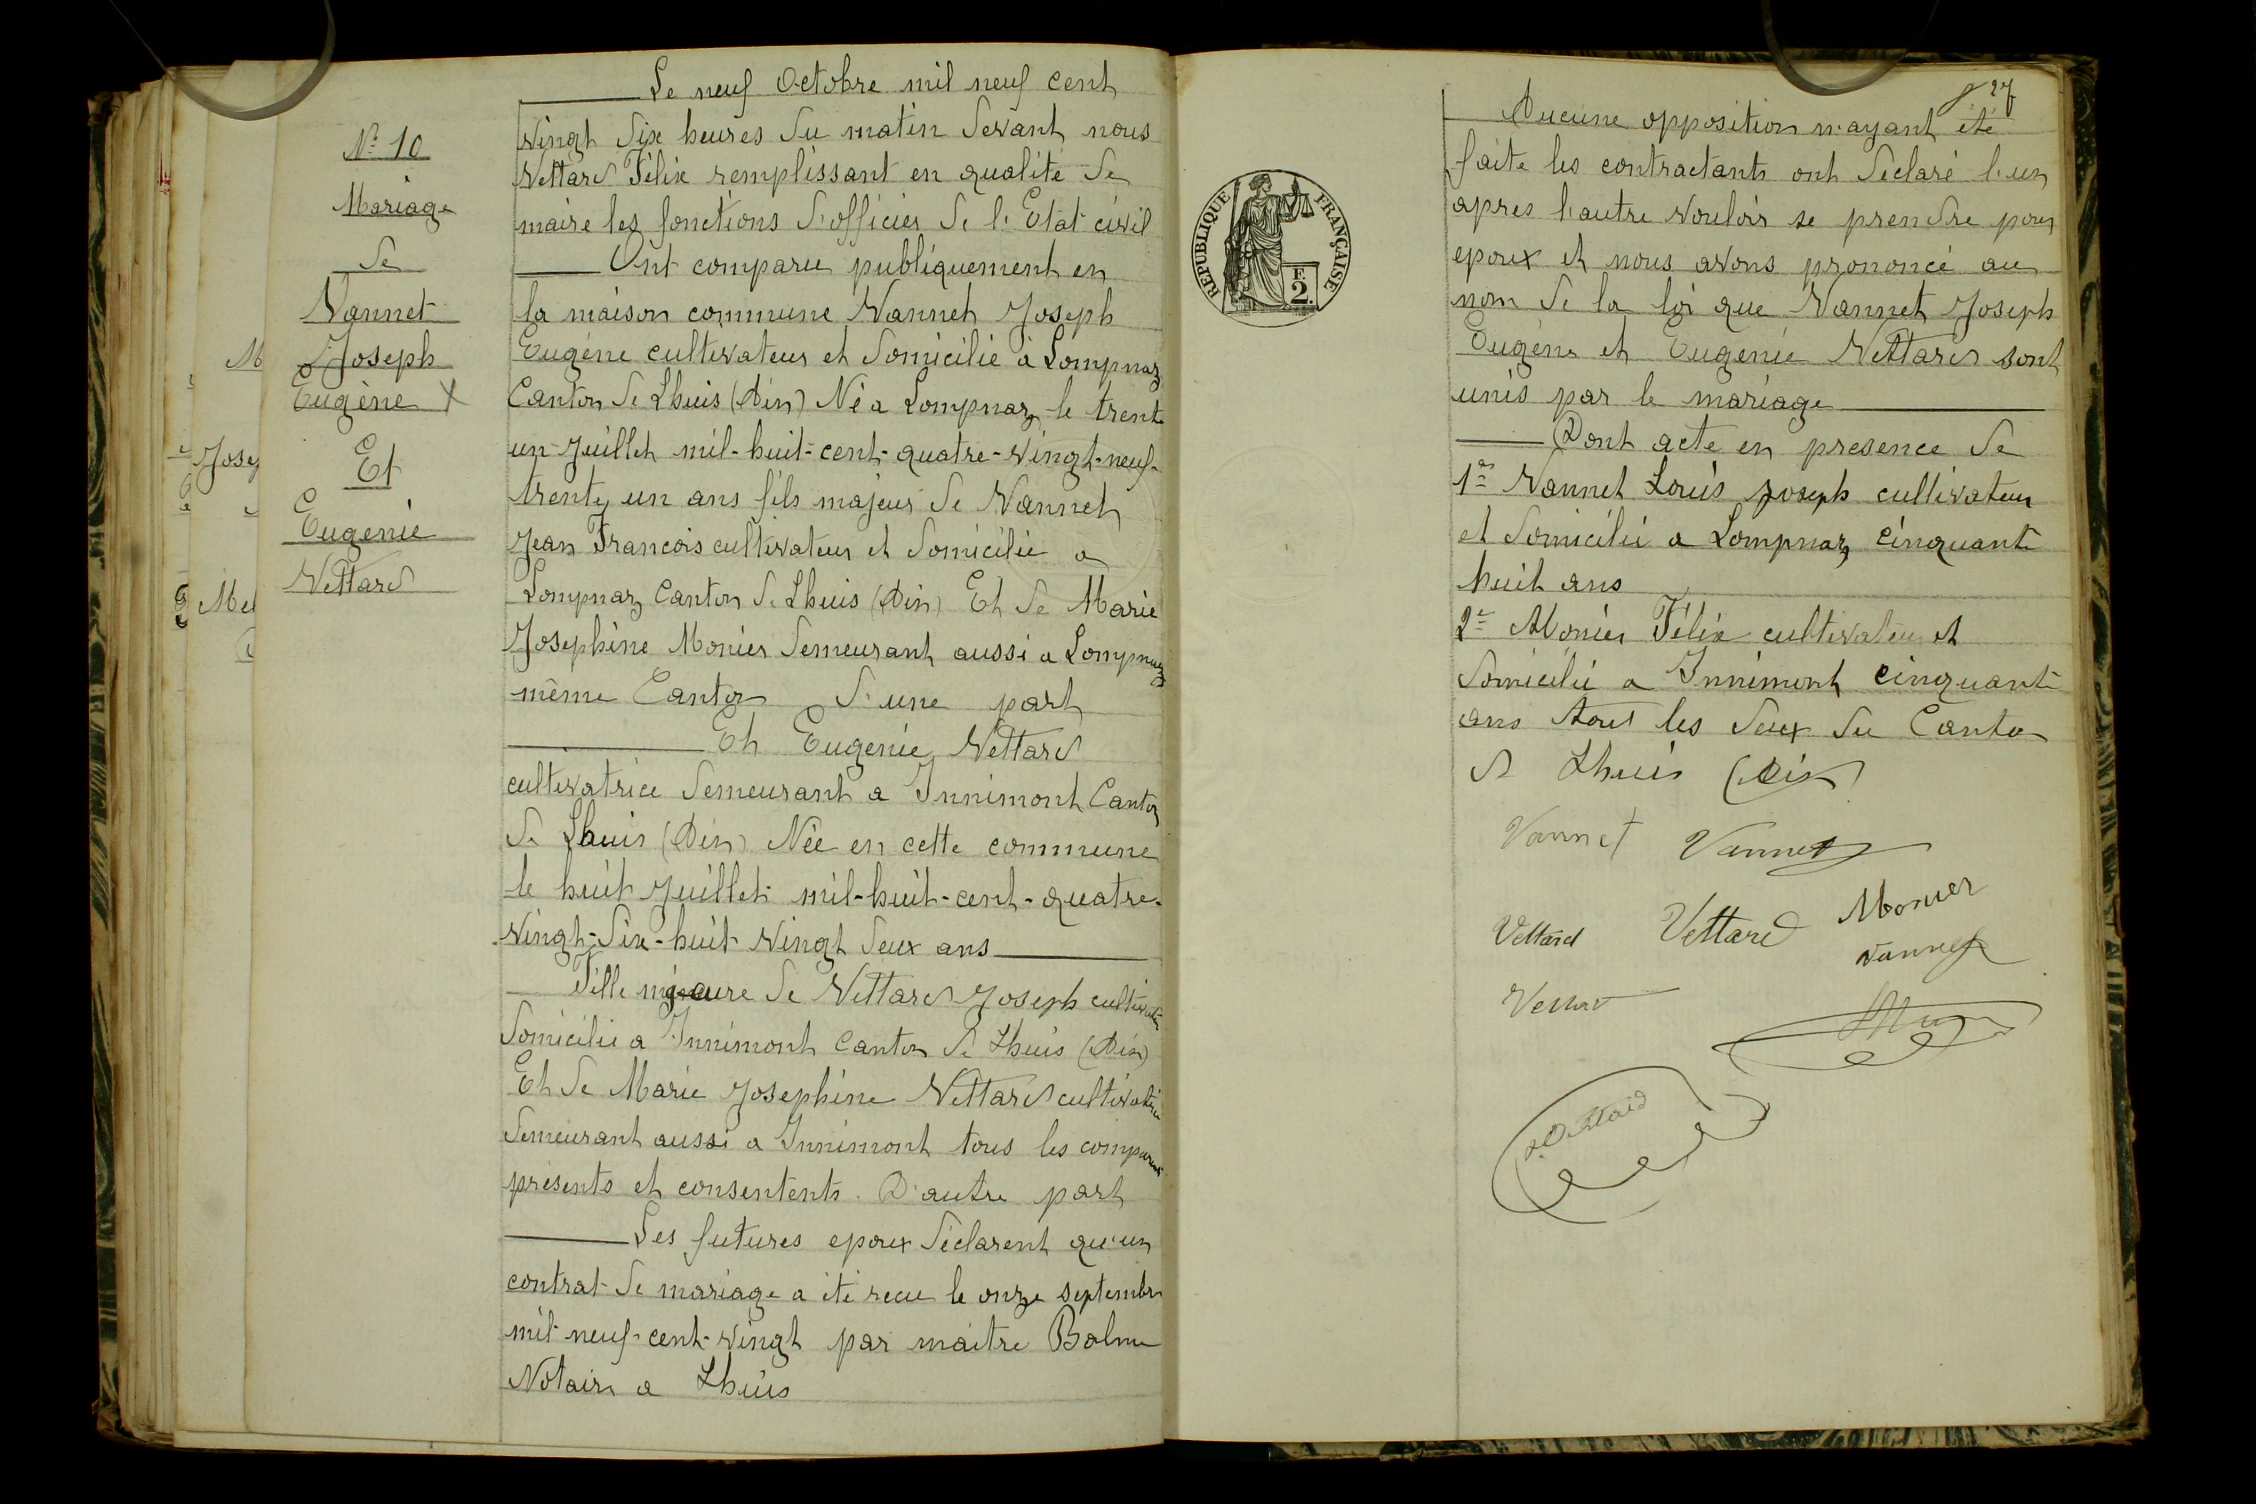 Le neuf Octobre mil neuf cent
vingt dix heures du matin devant nous
Vettard Félix remplissant en qualité de
maire les fonctions d'officier de l'Etat civil
Ont comparu publiquement en
la maison commune Vannet Joseph
Eugène cultivateur et domicilié à Lompnaz
Canton de Lhuis (Ain) Né a Lompnaz le trente
un Juillet mil-huit-cent-quatre-vingt-neuf-
trente un ans fils majeur de Vannet
Jean Francois cultivateur et domicilié a
Lompnaz Canton de Lhuis (Ain) Et de Marie
Joséphine Monier demeurant aussi a Lompnaz
même Canton d'une part
Et Eugenie Vettard
cultivatrice demeurant a Innimont Canton
de Lhuis (Ain) Née en cette commune
le huit Juillet mil-huit-cent-quatre-
vingt-dix-huit vingt deux ans
Fille majeure de Vettard Joseph cultivateur
domicilié a Innimont Canton de Lhuis (Ain)
Et de Marie Josephine Vettard cultivatrice
demeurant aussi a Innimont tous les comparents
présents et consentents. D'autre part
Les futures epoux déclarent qu'un
contrat de mariage a été recu le onze septembre
mil-neuf-cent-vingt par maitre Balme
Notaire a Lhuis
N° 10
Mariage
de
Vannet
Joseph
Eugène X
Et
Eugenie
Vettard
M
Josep
Mel
27
Aucune opposition n'ayant été
faite les contractants ont déclaré l'un
apres l'autre vouloir se prendre pour
epoux et nous avons prononcé au
nom de la loi que Vannet Joseph
Eugène et Eugenie Vettard sont
unis par le mariage
Dont acte en presence de
1er Vannet Louis Joseph cultivateur
et domicilié a Lompnaz cinquante
huit ans
2e Monier Félix cultivateur et
domicilié a Innimont cinquante
ans tous les deux du Canton
de Lhuis (Ain)
Vannet Vannet
Vettard Vettard Monier
Vannet
Vettard
RÉPUBLIQUE FRANÇAISE
F.
2.